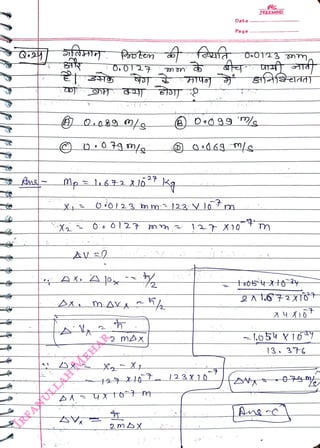 Date
Page
Q.24 गतिमान प्रोटान की स्थिति 0.0123 mm
और 0.0127 mm के बीच पायी जाती
है। इसके वेग के मापन में अनिश्चितता
का क्रम क्या होगा?
(A) 0.089 m/s (B) 0.099 m/s
(C) 0.079 m/s (D) 0.069 m/s
Ans:- Mp = 1.672 × 10⁻²⁷ kg
X₁ = 0.0123 mm = 123 × 10⁻⁷ m
X₂ = 0.0127 mm = 127 × 10⁻⁷ m
ΔV = ?
∵ Δx. Δpx = ħ/2
Δx. mΔVx = ħ/2
ΔVx = ħ/2mΔx
∵ Δx = X₂ - X₁
= 127 × 10⁻⁷ - 123 × 10⁻⁷
Δx = 4 × 10⁻⁷ m
ΔVx = ħ/2mΔx
= 1.054 × 10⁻³⁴
2 × 1.672 × 10⁻²⁷
× 4 × 10⁻⁷
= 1.054 × 10⁻³⁴
13.376
ΔVx = .079 m/s
Ans-C
IRFANULLAH MEHAR